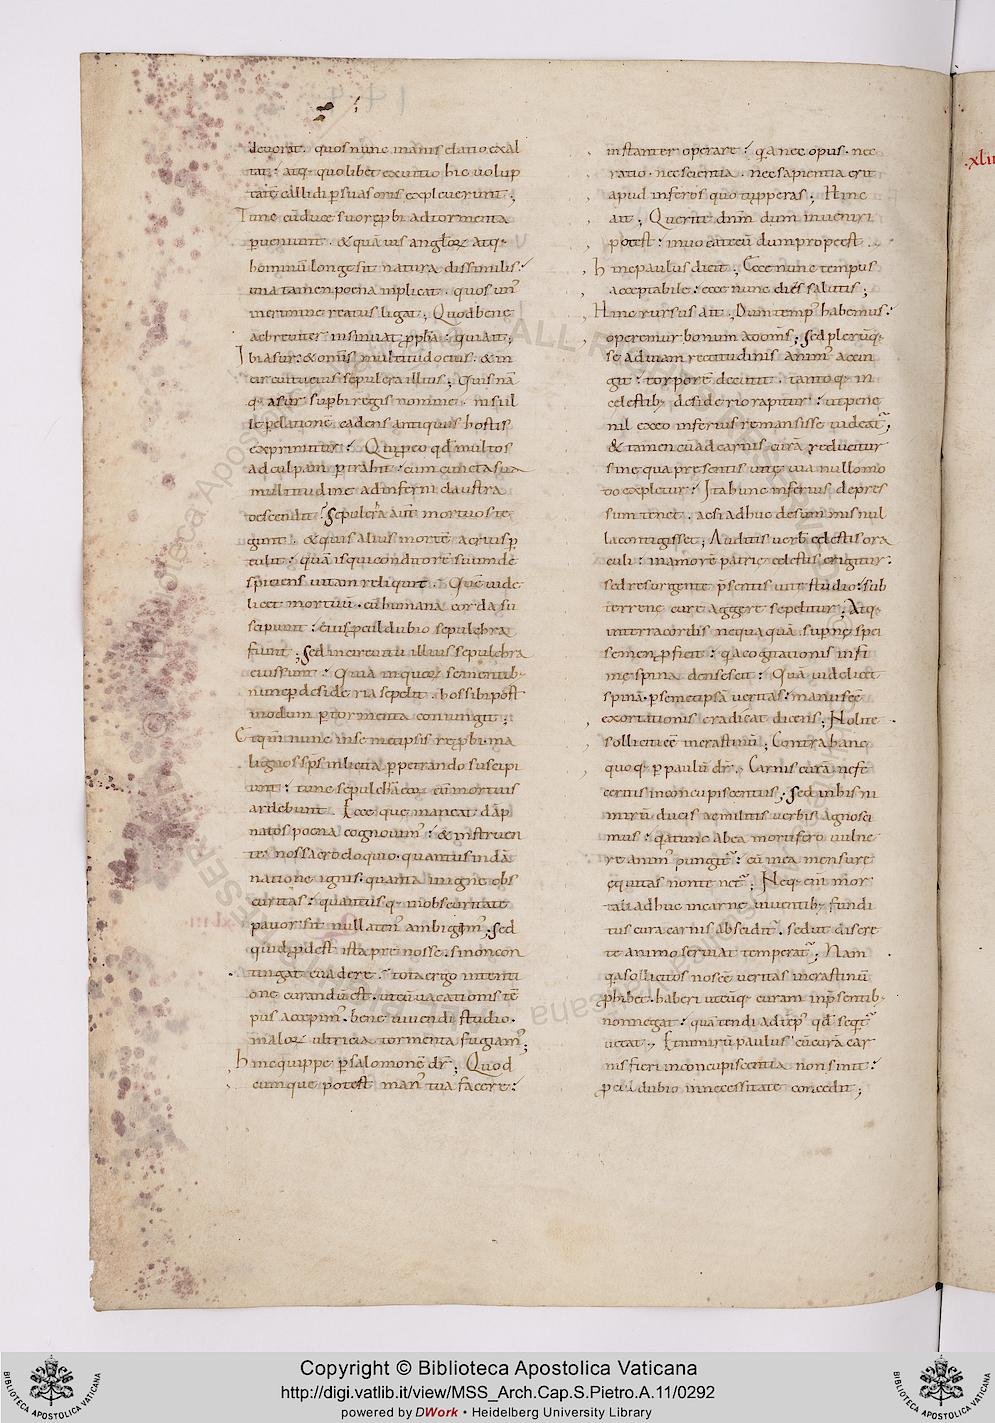 deuorat. quos nunc inanis elatio exal
tat: atq; quolibet ex uitio hic uolup
tatē callidi p̄suasoris expleuerunt;
Tunc cū duce suo rep̄bi ad tormenta
p̄ueniunt. & quāuis angłoꝝ atq;
hominū longe sit natura dissimilis:
una tamen poena inplicat. quos un'
in crimine reatus ligat; Quod bene
ac breuiter insinuat ꝓph̄a: qui ait;
Ibi asur: & om̄is multitudo eius. & in
circuitu eius sepulcra illius; Quis nā
q; asur sup̄bi regis nomine. nisi il
le p̄ elationē cadens antiquus hostis
exprimitur: Qui ꝓ eo qd̄ multos
ad culpam p̄trahit: cum cuncta sua
multitudine ad inferni claustra
descendit; Sepulcra aut̄ mortuos te
gunt. & quis alius mortē acrius ꝑ
culit: quā is qui conditorē suum de
spiciens uitam reliquit. Quē uide
licet mortuū. cū humana corda su
scipiunt: eius ꝓcul dubio sepulchra
fiunt; Sed in circuitu illius sepulchra
eius sunt: Quia in quoꝝ se mentib;
nunc p̄ desideria sepelit. hos sibi post
modum p̄ tormenta coniungit;
Et qm̄ nunc in semetipsis rep̄bi. ma
lignos sp̄s inlicita ꝑpetrando suscipi
unt: tunc sepulchra cū mortuis
ardebunt. Ecce que maneat dāp
natos poena cognouim': & instruen
te nos sacro eloquio. quantus in dā
natione ignis. quanta in igne obs
curitas: quantus q; in obscuritate
pauor sit nullaten' ambigim'; Sed
quid ꝓdest ista prenosse. si non con
tingat euadere: tota ergo intenti
one curandū est. ut cū uacationis tē
pus accepim'. bene uiuendi studio.
maloꝝ ultricia tormenta fugiam';
Hinc quippe p̄ salomonē dr̄; Quod
cumque potest man' tua facere:
instanter operare: q̄a nec opus. nec
ratio. nec scientia. nec sapientia erit
apud inferos quo tu ꝓperas; Hinc
ait; Querite dn̄m dum inueniri
potest: inuocate eū dum prope est.
Hinc paulus dicit; Ecce nunc tempus
acceptabile: ecce nunc dies salutis;
Hinc rursus ait; Dum temp' habemus:
operemur bonum ad om̄s; Sed plerūq;
se ad uiam rectitudinis anim' accin
git: torporē decutit. tantoq; in
celestib; desiderio rapitur: ut pene
nil ex eo inferius remansisse uideat̄;
& tamen cū ad carnis curā reducitur
sine qua presentis uite uia nullo mo
do expletur: Ita hunc inferius depres
sum tenet. ac si adhuc de summis nil
la contigisset; Auditis uerb' celestis ora
culi: in amorē patrie celestis erigitur:
sed resurgente p̄sentis uite studio: sub
terrene cure aggere sepelitur; Atq;
in terra cordis nequaquā supne spei
semen ꝓficit: q̄a cogitationis infi
me spina densescit: Quā uidelicet
spinā. p̄ semetipsā ueritas: manu scē
exortationis eradicat dicens; Nolite
solliciti eē in crastinū; Contra hanc
quoq; p̄ paulū dr̄. Carnis curā ne fe
ceritis in concupiscentiis; Sed in his ni
mirū ducis ac militis uerbis agnosci
mus: q̄a tunc ab ea mortifero uulne
re anim' pungit̄: cū in ea mensure
equitas non tenet̄; Neq; eni mor
tali adhuc in carne uiuentib; fundi
tus cura carnis abscidit̄. sed ut discre
te animo seruiat temperat̄; Nam
q̄a sollicitos nos eē ueritas in crastinū
ꝓhibet. haberi utcūq; curam in p̄sentib;
non negat: quā tendi ad temp' qd̄ seqt̄
uetat; Et nimirū paulus cū cura car
nis fieri in concupiscentia non sinit:
ꝓcul dubio in necessitate concedit;
Copyright © Biblioteca Apostolica Vaticana
http://digi.vatlib.it/view/MSS_Arch.Cap.S.Pietro.A.11/0292
powered by DWork • Heidelberg University Library
BIBLIOTECA APOSTOLICA VATICANA
BIBLIOTECA APOSTOLICA VATICANA